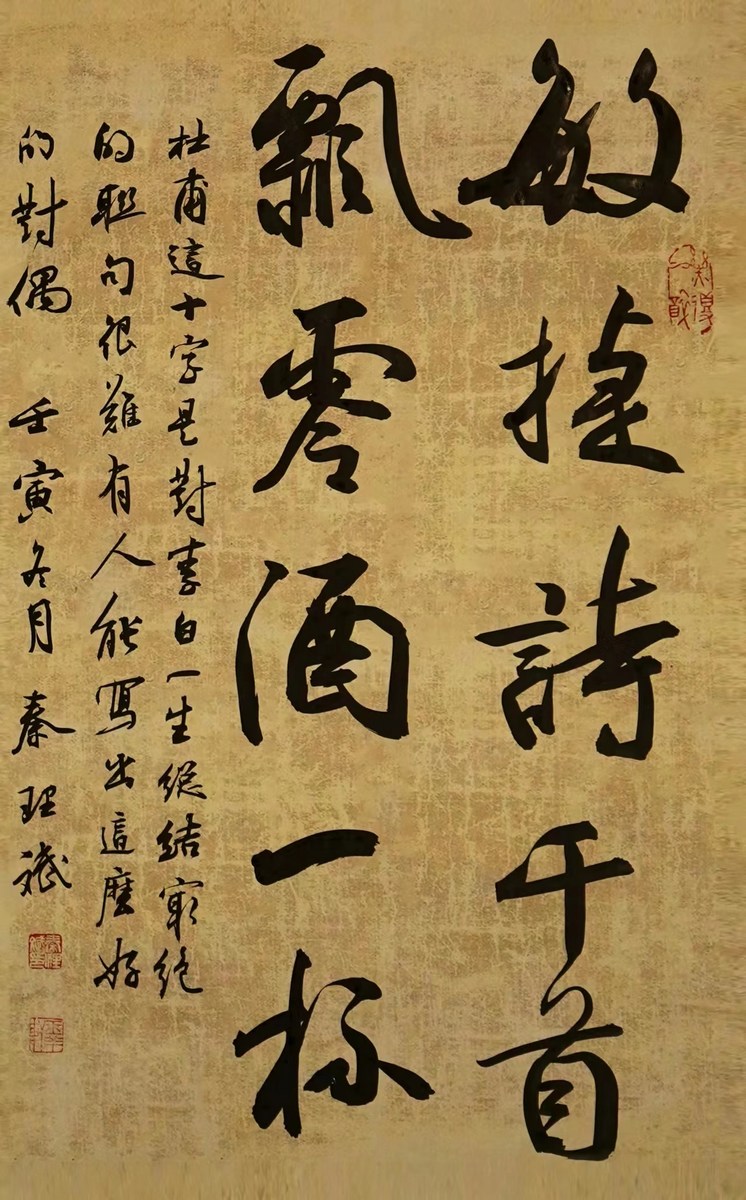 敏捷詩千首
飄零酒一杯
杜甫這十字是對李白一生總結最絕
的聯句很難有人能寫出這麼好
的對偶 壬寅冬月 秦理斌